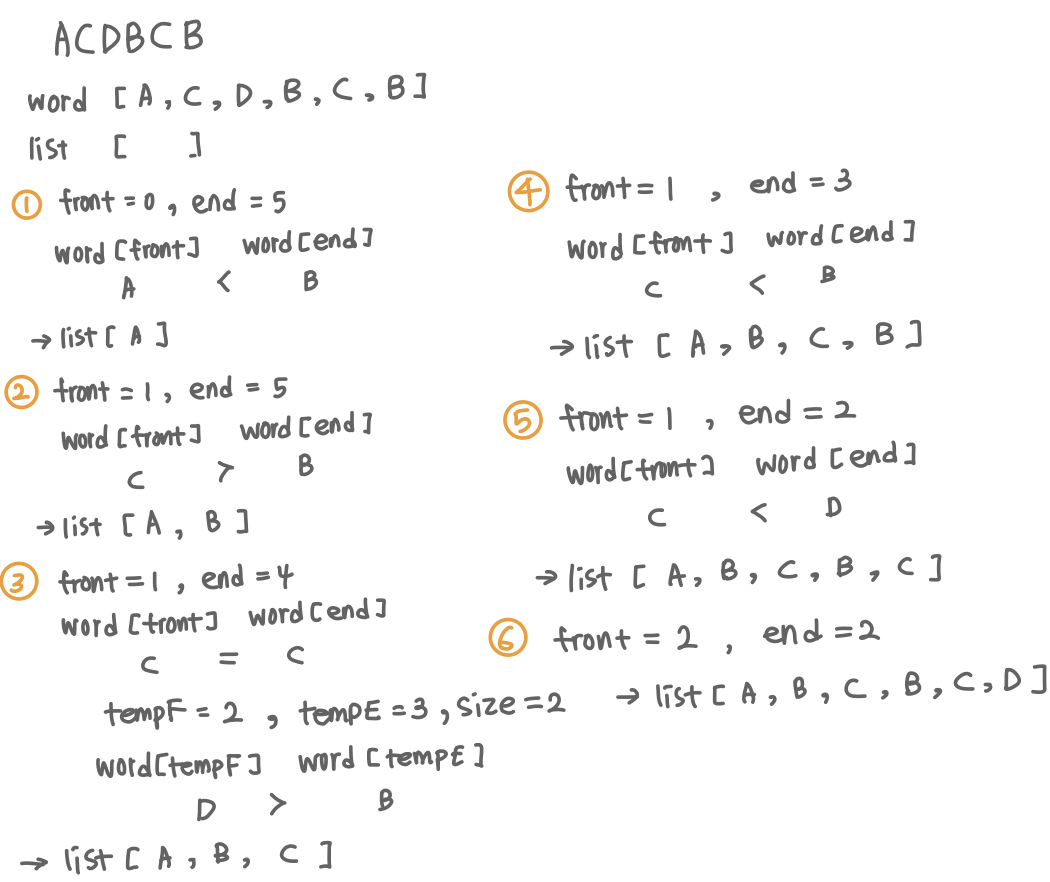 ACDBCB
word [A, C, D, B, C, B]
list [ ]
① front = 0, end = 5
word [front] word [end]
A < B
→ list [ A ]
② front = 1, end = 5
word [front] word [end]
C > B
→ list [ A, B ]
③ front = 1, end = 4
word [front] word [end]
C = C
tempF = 2, tempE = 3, size = 2
word[tempF] word [tempE]
D > B
→ list [ A, B, C ]
④ front = 1, end = 3
word [front] word [end]
C < B
→ list [ A, B, C, B ]
⑤ front = 1, end = 2
word[front] word [end]
C < D
→ list [ A, B, C, B, C ]
⑥ front = 2, end = 2
→ list [ A, B, C, B, C, D ]